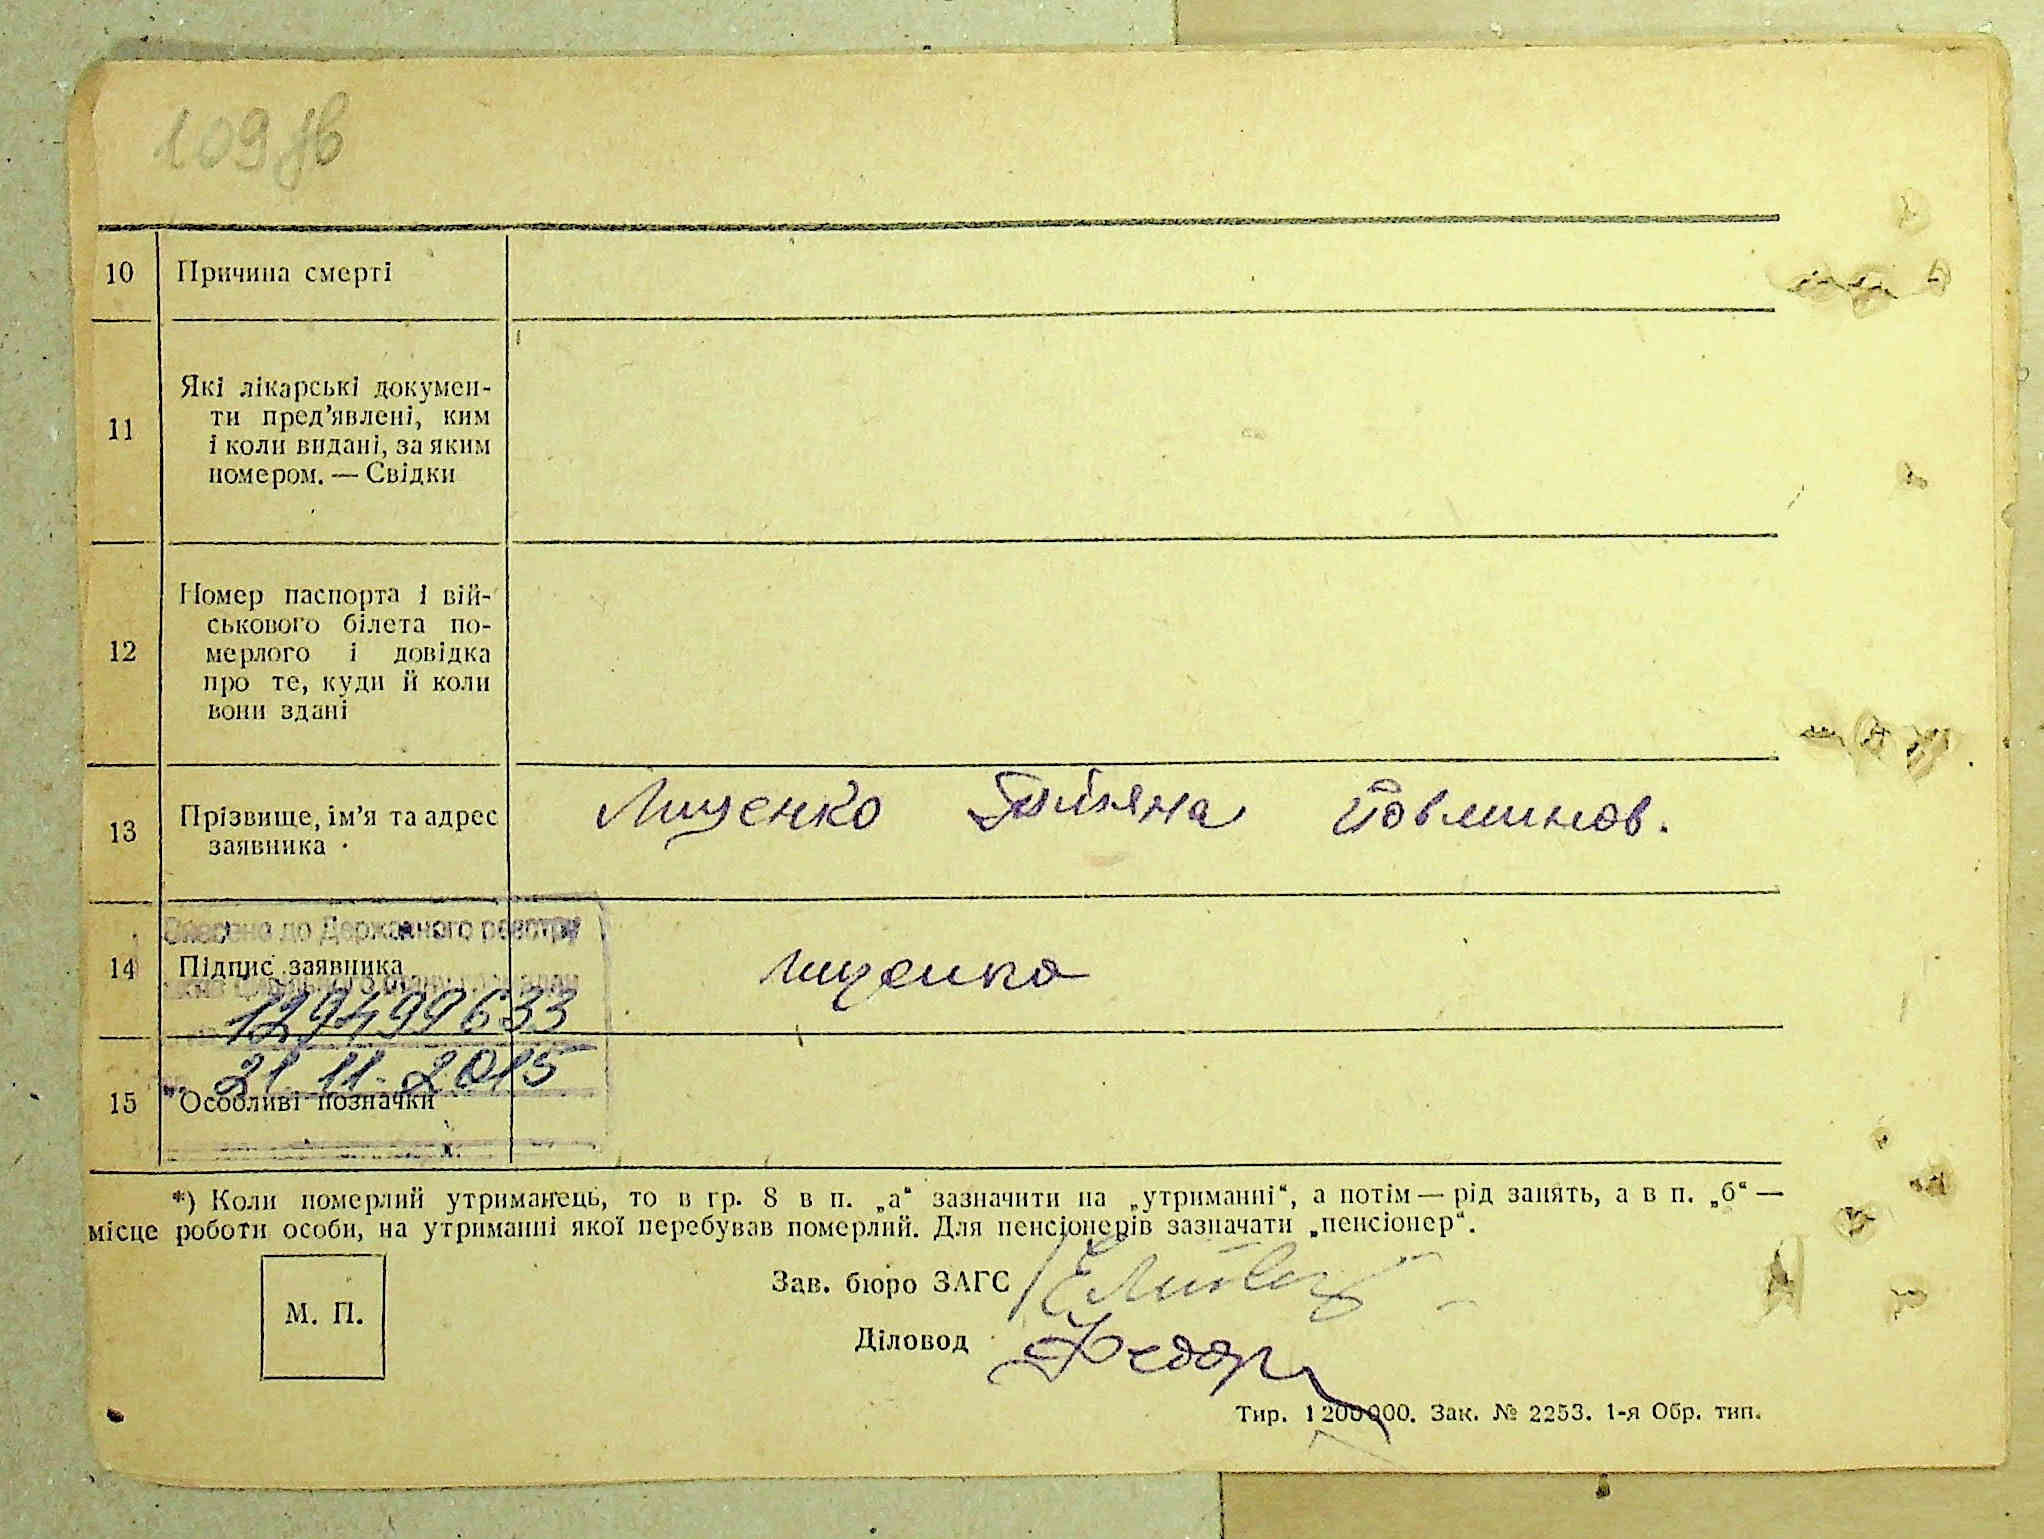 109 зв
10 Причина смерті
11 Які лікарські докумен-
ти пред'явлені, ким
і коли видані, за яким
номером. — Свідки
12 Номер паспорта і вій-
ського білета по-
мерлого і довідка
про те, куди й коли
вони здані
13 Прізвище, ім'я та адрес
заявника
Лищенко Татіяна
Внесено до Державного реєстру
14 Підпис заявника
лищенко
129499633
21.11.2015
15 Особливі позначки
*) Коли померлий утриманець, то в гр. 8 в п. „а“ зазначити на „утриманні“, а потім — рід занять, а в п. „б“ —
місце роботи особи, на утриманні якої перебував померлий. Для пенсіонерів зазначати „пенсіонер“.
М. П.
Зав. бюро ЗАГС
Діловод
Тир. 1200000. Зак. № 2253. 1-я Обр. тип.